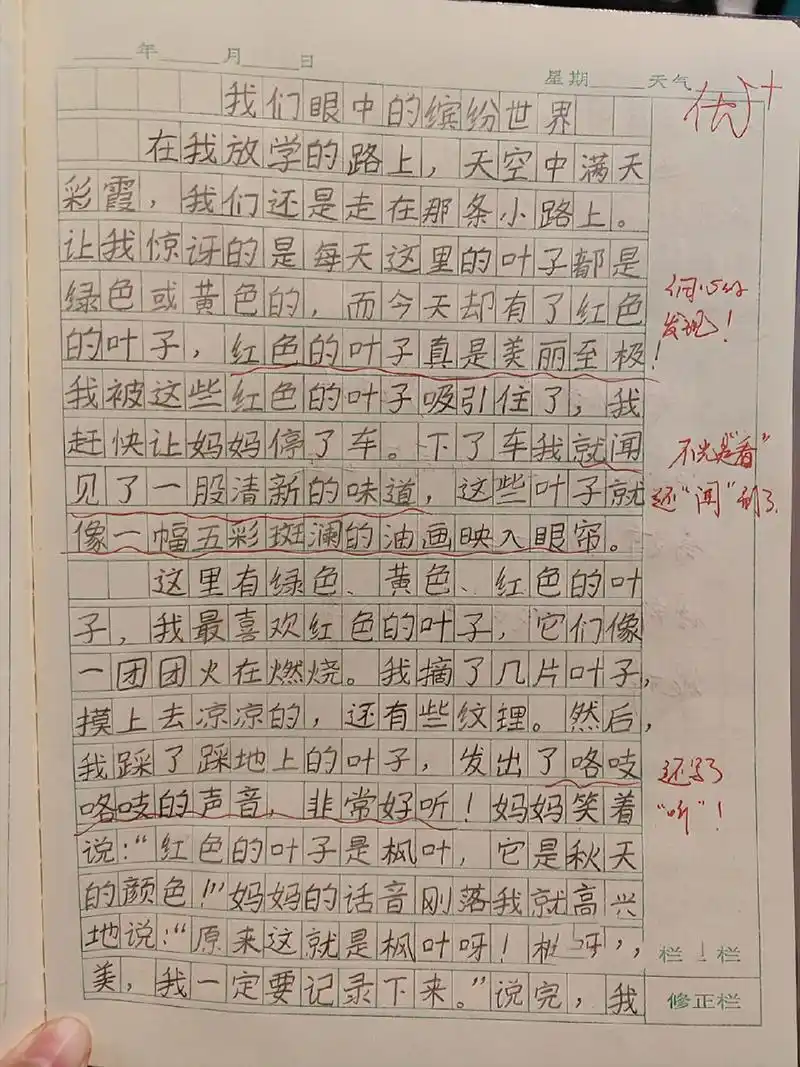 年 月 日
星期 天气
优+
我们眼中的缤纷世界
在我放学的路上，天空中满天
彩霞，我们还是走在那条小路上。
让我惊讶的是每天这里的叶子都是
绿色或黄色的，而今天却有了红色
的叶子，红色的叶子真是美丽至极！
细心的
发现！
我被这些红色的叶子吸引住了，我
赶快让妈妈停了车。下了车我就闻
见了一股清新的味道，这些叶子就
像一幅五彩斑斓的油画映入眼帘。
不光是“看”
还“闻”到了.
这里有绿色、黄色、红色的叶
子，我最喜欢红色的叶子，它们像
一团团火在燃烧。我摘了几片叶子，
摸上去凉凉的，还有些纹理。然后，
我踩了踩地上的叶子，发出了咯吱
咯吱的声音，非常好听！妈妈笑着
还写了
“听”！
说：“红色的叶子是枫叶，它是秋天
的颜色！”妈妈的话音刚落我就高兴
地说：“原来这就是枫叶呀！
美，我一定要记录下来。”说完，我
栏 栏
修正栏